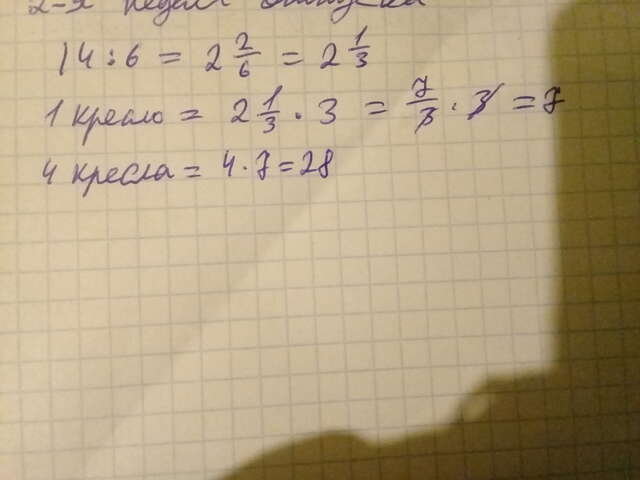 14 : 6 = 2 2/6 = 2 1/3
1 кресло = 2 1/3 · 3 = 7/3 · 3 = 7
4 кресла = 4 · 7 = 28